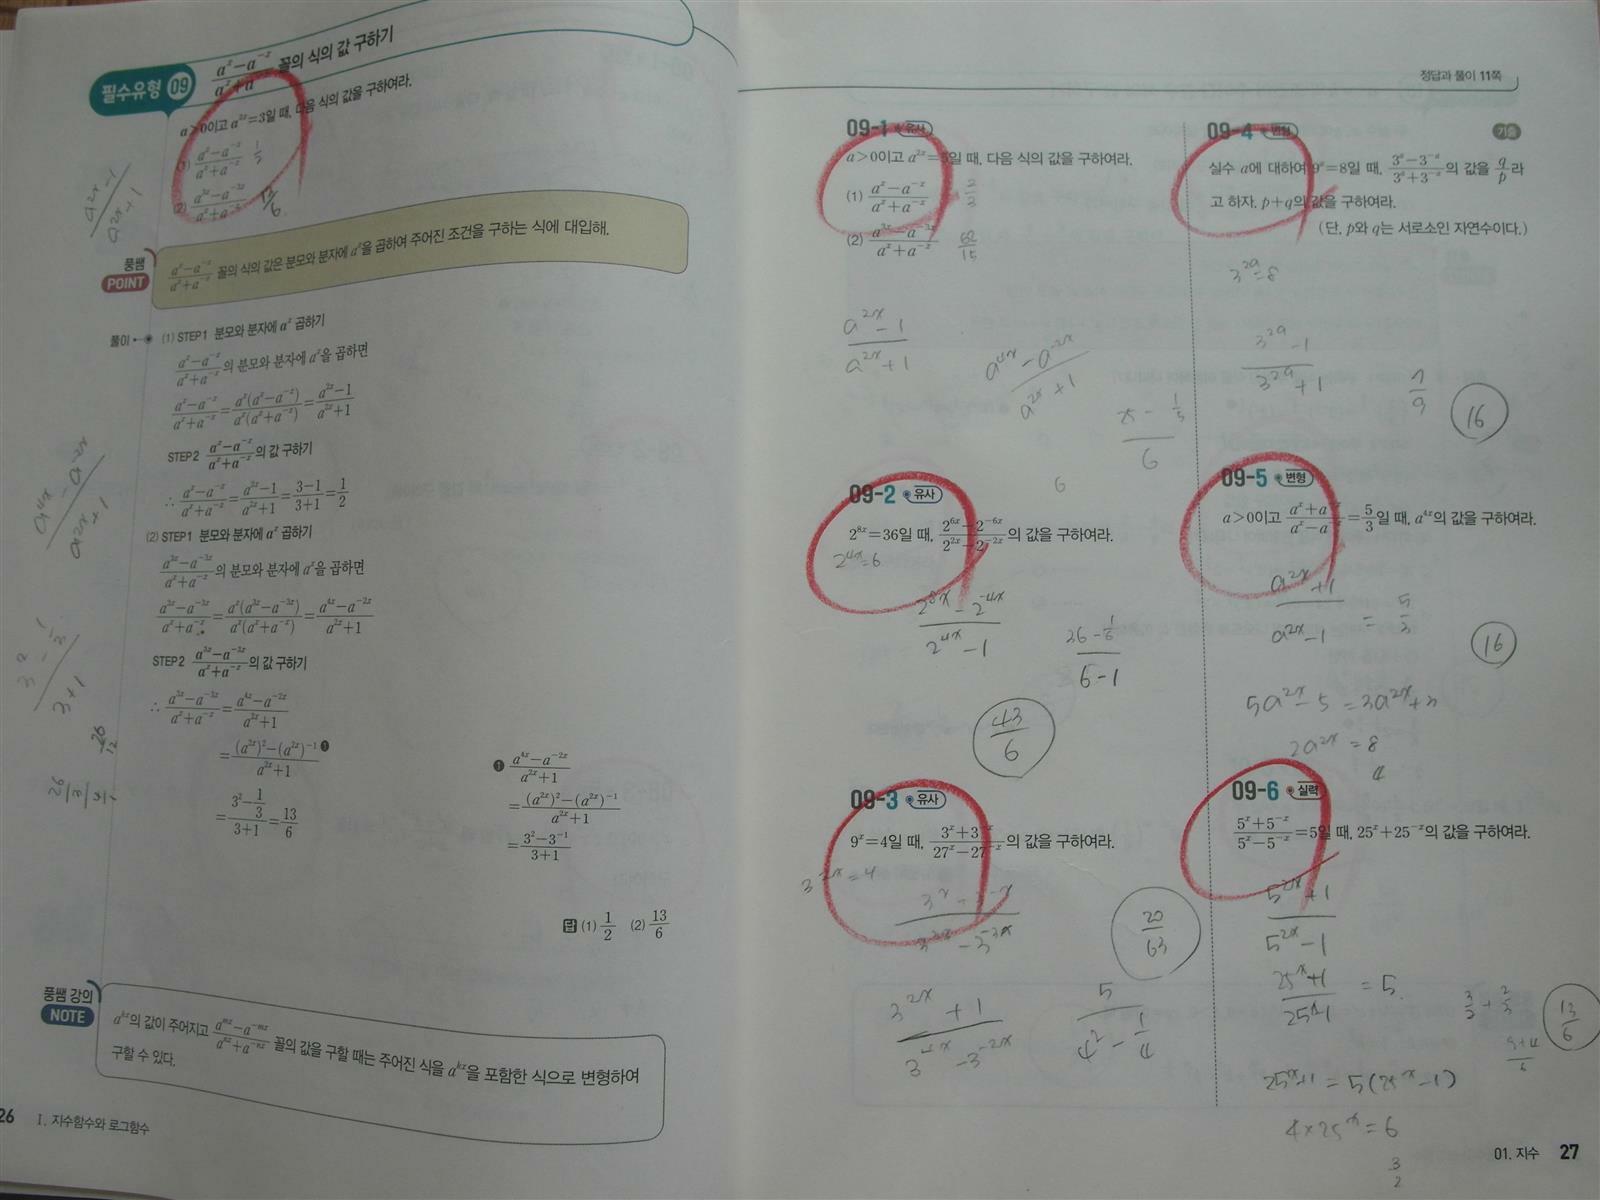 필수유형 09
a^x-a^-x / a^x+a^-x 꼴의 식의 값 구하기
a>0이고 a^2x=3일 때, 다음 식의 값을 구하여라.
(1) a^x-a^-x / a^x+a^-x 1/2
(2) a^3x-a^-3x / a^x+a^-x 13/6
a^2x-1 / a^2x+1
풍쌤 POINT
a^x-a^-x / a^x+a^-x 꼴의 식의 값은 분모와 분자에 a^x을 곱하여 주어진 조건을 구하는 식에 대입해.
풀이
(1) STEP1 분모와 분자에 a^x 곱하기
a^x-a^-x / a^x+a^-x 의 분모와 분자에 a^x을 곱하면
a^x-a^-x / a^x+a^-x = a^x(a^x-a^-x) / a^x(a^x+a^-x) = a^2x-1 / a^2x+1
STEP2 a^x-a^-x / a^x+a^-x 의 값 구하기
∴ a^x-a^-x / a^x+a^-x = a^2x-1 / a^2x+1 = 3-1 / 3+1 = 1/2
a^4x - a^-2x / a^2x+1
(2) STEP1 분모와 분자에 a^x 곱하기
a^3x-a^-3x / a^x+a^-x 의 분모와 분자에 a^x을 곱하면
a^3x-a^-3x / a^x+a^-x = a^x(a^3x-a^-3x) / a^x(a^x+a^-x) = a^4x-a^-2x / a^2x+1
STEP2 a^3x-a^-3x / a^x+a^-x 의 값 구하기
∴ a^3x-a^-3x / a^x+a^-x = a^4x-a^-2x / a^2x+1
= (a^2x)^2-(a^2x)^-1 / a^2x+1 ❶
= 3^2-1/3 / 3+1 = 13/6
3^2 - 1/3 / 3+1
26/12
❶ a^4x-a^-2x / a^2x+1
= (a^2x)^2-(a^2x)^-1 / a^2x+1
= 3^2-3^-1 / 3+1
답 (1) 1/2 (2) 13/6
풍쌤 강의 NOTE
a^kx의 값이 주어지고 a^mx-a^-mx / a^nx+a^-nx 꼴의 값을 구할 때는 주어진 식을 a^kx을 포함한 식으로 변형하여
구할 수 있다.
26 Ⅰ. 지수함수와 로그함수
정답과 풀이 11쪽
09-1 유사
a>0이고 a^2x=5일 때, 다음 식의 값을 구하여라.
(1) a^x-a^-x / a^x+a^-x 2/3
(2) a^3x-a^-3x / a^x+a^-x 62/15
a^2x-1 / a^2x+1
a^4x - a^-2x / a^2x+1
6
09-2 유사
2^8x=36일 때, 2^6x-2^-6x / 2^2x-2^-2x 의 값을 구하여라.
2^4x=6
2^8x-2^-4x / 2^4x-1
36-1/6 / 6-1
43/6
09-3 유사
9^x=4일 때, 3^x+3^-x / 27^x-27^-x 의 값을 구하여라.
3^2x=4
3^3x-3^-3x
20/63
3^2x+1 / 3^4x-3^-2x
5 / 4^2-1/4
09-4 변형 기출
실수 a에 대하여 9^a=8일 때, 3^a-3^-a / 3^a+3^-a 의 값을 q/p 라
고 하자. p+q의 값을 구하여라.
(단, p와 q는 서로소인 자연수이다.)
3^2a=8
3^2a-1 / 3^2a+1
7/9
16
09-5 변형
a>0이고 a^x+a^-x / a^x-a^-x = 5/3일 때, a^4x의 값을 구하여라.
a^2x+1 / a^2x-1 = 5/3
16
5a^2x-5=3a^2x+3
2a^2x=8
4
09-6 실력
5^x+5^-x / 5^x-5^-x = 5일 때, 25^x+25^-x의 값을 구하여라.
5^2x+1 / 5^2x-1
25^x+1 / 25^x-1 = 5
3/2+2/3
9+4 / 6
13/6
25^x+1=5(25^x-1)
4×25^x=6
3/2
01. 지수 27